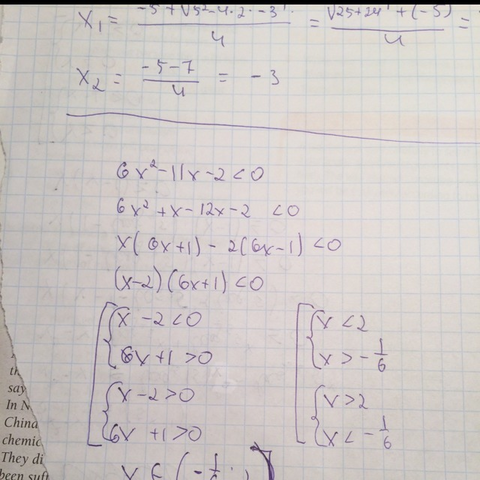 x₁ = (-5 + √(5² - 4·2·-3)) / 4 = (√(25+24) + (-5)) / 4 =
x₂ = (-5-7) / 4 = -3
6x² - 11x - 2 < 0
6x² + x - 12x - 2 < 0
x(6x+1) - 2(6x-1) < 0
(x-2)(6x+1) < 0
x - 2 < 0 x < 2
6x + 1 > 0 x > -1/6
x - 2 > 0 x > 2
6x + 1 > 0 x < -1/6
x ∈ (-1/6 ;
say
In N
China
chemic
They di
been suff